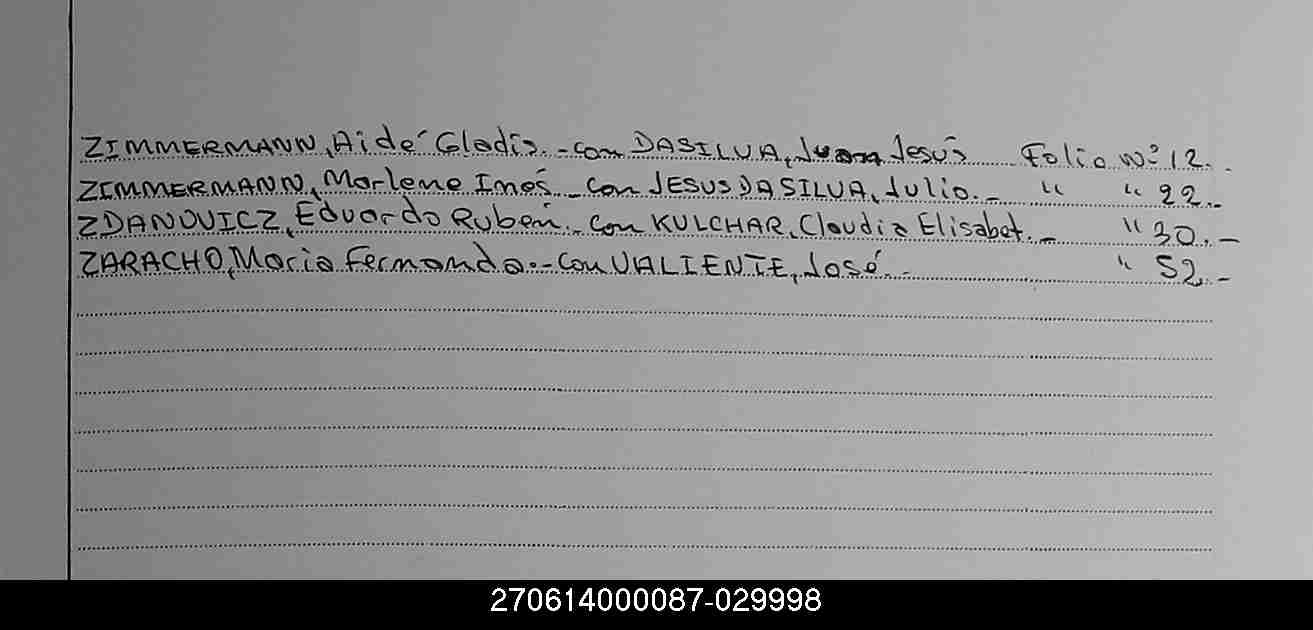 ZIMMERMANN, Aidé Gladis.- con DASILVA, Juan Jesús Folio Nº 12.-
ZIMMERMANN, Marlene Inés - con JESUS DA SILVA, Julio.- " " 22.-
ZDANOVICZ, Eduardo Rubén.- con KULCHAR, Claudia Elisabet.- " 30.-
ZARACHO, María Fernanda.- con VALIENTE, José.- " 52.-
270614000087-029998